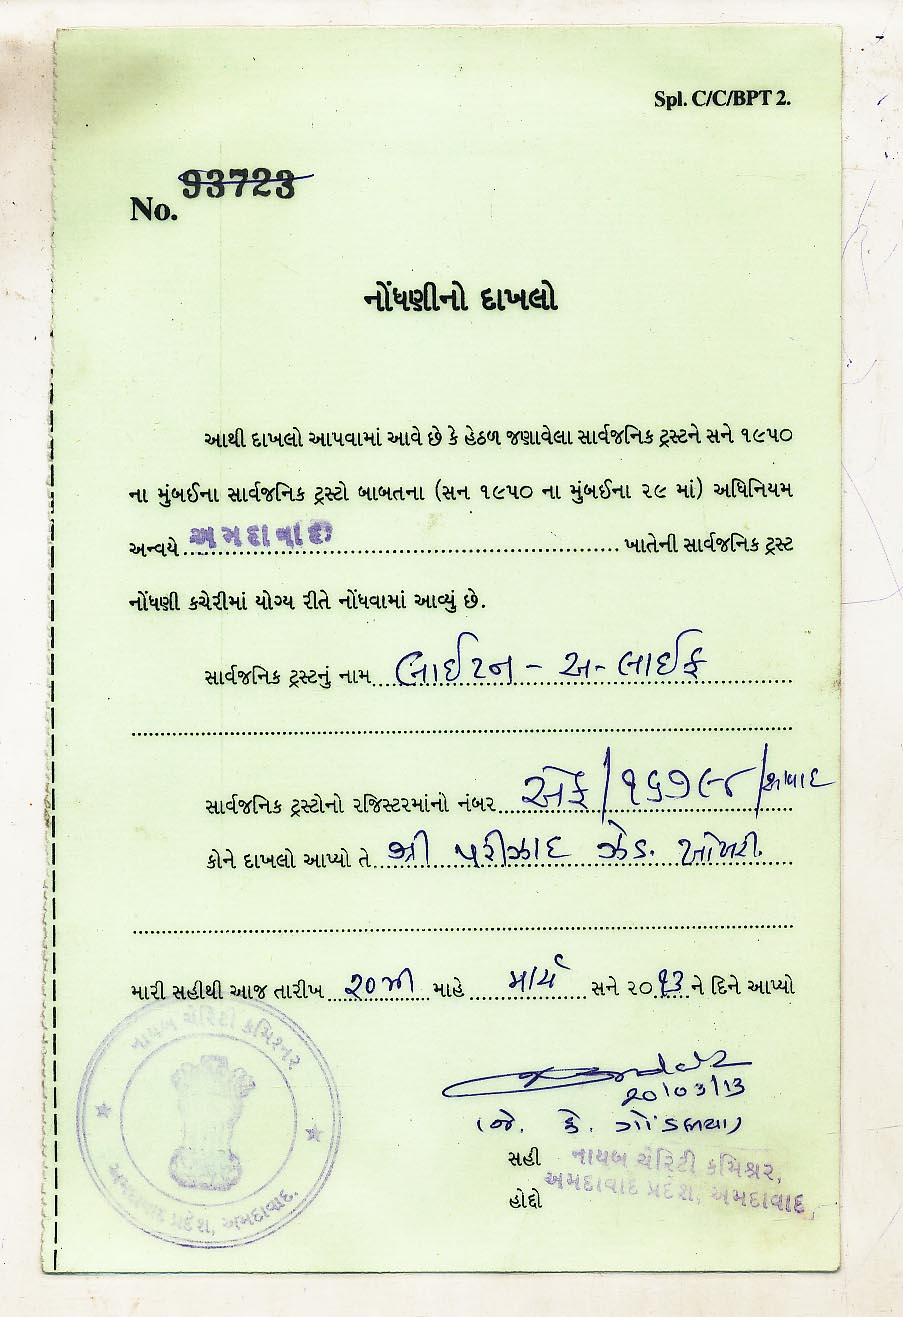 Spl. C/C/BPT 2.
No. 93723
નોંધણીનો દાખલો
આથી દાખલો આપવામાં આવે છે કે હેઠળ જણાવેલા સાર્વજનિક ટ્રસ્ટને સને ૧૯૫૦
ના મુંબઈના સાર્વજનિક ટ્રસ્ટો બાબતના (સન ૧૯૫૦ ના મુંબઈના ૨૯ માં) અધિનિયમ
અન્વયે અમદાવાદ ખાતેની સાર્વજનિક ટ્રસ્ટ
નોંધણી કચેરીમાં યોગ્ય રીતે નોંધવામાં આવ્યું છે.
સાર્વજનિક ટ્રસ્ટનું નામ લાઈટન - અ - લાઈફ
સાર્વજનિક ટ્રસ્ટોનો રજિસ્ટરમાંનો નંબર એફ/૧૬૭૯૮/અ'વાદ
કોને દાખલો આપ્યો તે શ્રી પરીઝાદ ઝેડ.
મારી સહીથી આજ તારીખ ૨૦મી માહે માર્ચ સને ૨૦૧૩ ને દિને આપ્યો
૨૦/૦૩/૧૩
(જે. કે. ગોંડલીયા)
સહી નાયબ ચેરિટી કમિશ્નર,
હોદ્દો અમદાવાદ પ્રદેશ, અમદાવાદ.
નાયબ ચેરિટી કમિશ્નર
અમદાવાદ પ્રદેશ, અમદાવાદ.